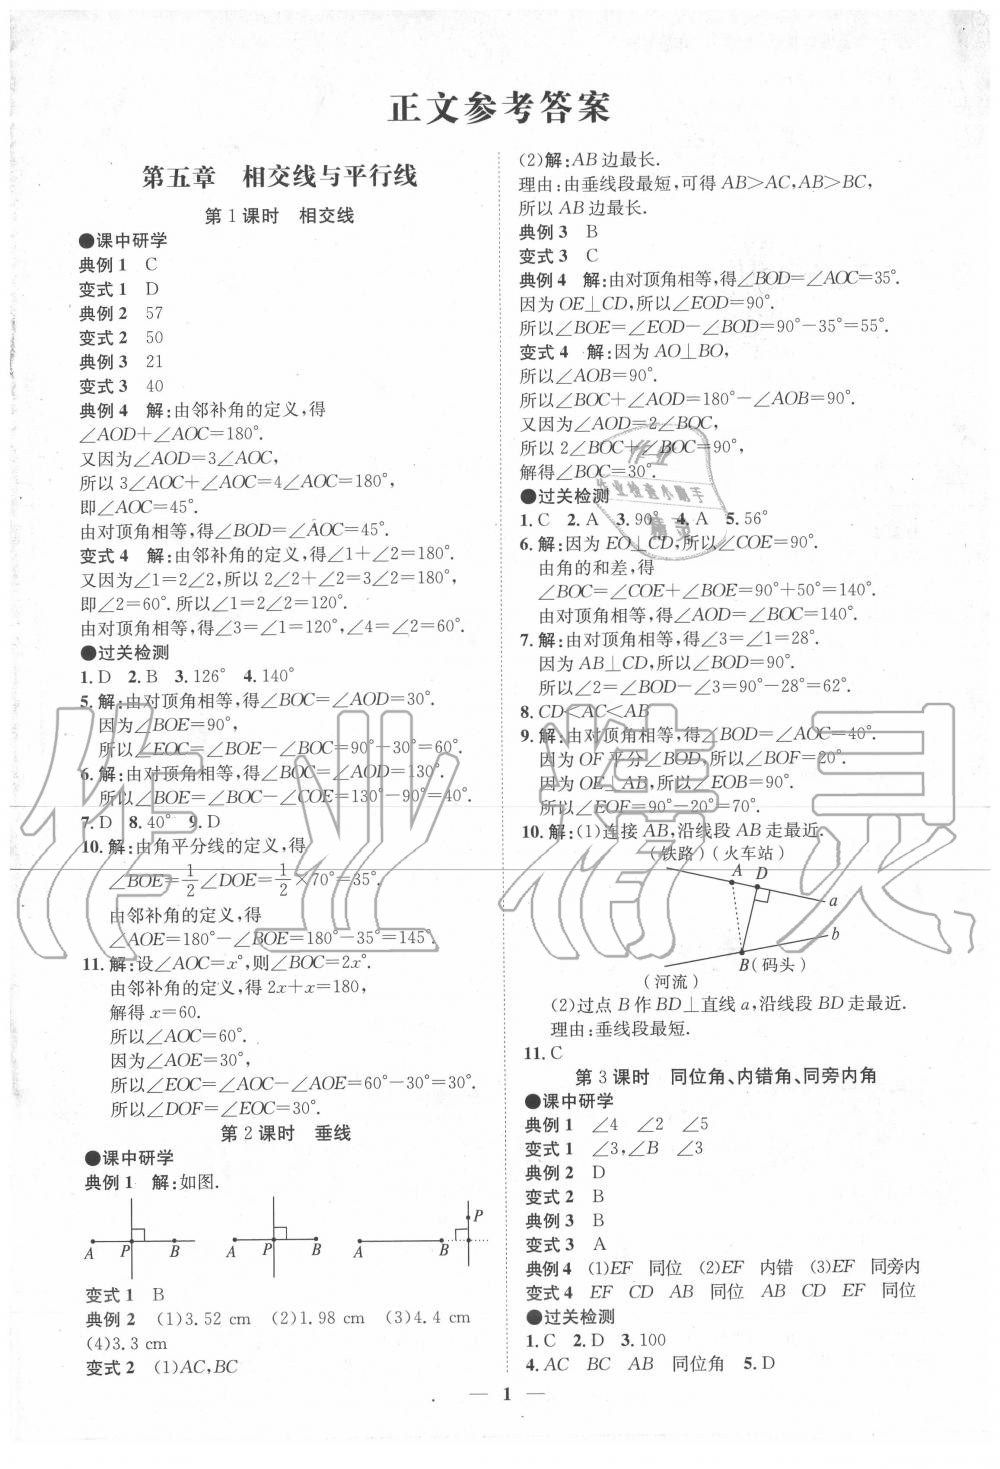 正文参考答案
第五章　相交线与平行线
第1课时　相交线
●课中研学
典例1　C
变式1　D
典例2　57
变式2　50
典例3　21
变式3　40
典例4　解:由邻补角的定义,得
∠AOD+∠AOC=180°.
又因为∠AOD=3∠AOC,
所以3∠AOC+∠AOC=4∠AOC=180°,
即∠AOC=45°.
由对顶角相等,得∠BOD=∠AOC=45°.
变式4　解:由邻补角的定义,得∠1+∠2=180°.
又因为∠1=2∠2,所以2∠2+∠2=3∠2=180°,
即∠2=60°.所以∠1=2∠2=120°.
由对顶角相等,得∠3=∠1=120°,∠4=∠2=60°.
●过关检测
1. D　2. B　3. 126°　4. 140°
5. 解:由对顶角相等,得∠BOC=∠AOD=30°.
因为∠BOE=90°,
所以∠EOC=∠BOE-∠BOC=90°-30°=60°.
6. 解:由对顶角相等,得∠BOC=∠AOD=130°.
所以∠BOE=∠BOC-∠COE=130°-90°=40°.
7. D　8. 40°　9. D
10. 解:由角平分线的定义,得
∠BOE=1/2∠DOE=1/2×70°=35°.
由邻补角的定义,得
∠AOE=180°-∠BOE=180°-35°=145°.
11. 解:设∠AOC=x°,则∠BOC=2x°.
由邻补角的定义,得2x+x=180,
解得x=60.
所以∠AOC=60°.
因为∠AOE=30°,
所以∠EOC=∠AOC-∠AOE=60°-30°=30°.
所以∠DOF=∠EOC=30°.
第2课时　垂线
●课中研学
典例1　解:如图.
A P B A P B A B P
变式1　B
典例2　(1)3.52 cm　(2)1.98 cm　(3)4.4 cm
(4)3.3 cm
变式2　(1)AC,BC
(2)解:AB边最长.
理由:由垂线段最短,可得AB>AC,AB>BC,
所以AB边最长.
典例3　B
变式3　C
典例4　解:由对顶角相等,得∠BOD=∠AOC=35°.
因为OE⊥CD,所以∠EOD=90°.
所以∠BOE=∠EOD-∠BOD=90°-35°=55°.
变式4　解:因为AO⊥BO,
所以∠AOB=90°.
所以∠BOC+∠AOD=180°-∠AOB=90°.
又因为∠AOD=2∠BOC,
所以2∠BOC+∠BOC=90°.
解得∠BOC=30°.
●过关检测
1. C　2. A　3. 90°　4. A　5. 56°
6. 解:因为EO⊥CD,所以∠COE=90°.
由角的和差,得
∠BOC=∠COE+∠BOE=90°+50°=140°.
由对顶角相等,得∠AOD=∠BOC=140°.
7. 解:由对顶角相等,得∠3=∠1=28°.
因为AB⊥CD,所以∠BOD=90°.
所以∠2=∠BOD-∠3=90°-28°=62°.
8. CD<AC<AB
9. 解:由对顶角相等,得∠BOD=∠AOC=40°.
因为OF平分∠BOD,所以∠BOF=20°.
因为OE⊥AB,所以∠EOB=90°.
所以∠EOF=90°-20°=70°.
10. 解:(1)连接AB,沿线段AB走最近.
(铁路)(火车站)
A D
a
b
B(码头)
(河流)
(2)过点B作BD⊥直线a,沿线段BD走最近.
理由:垂线段最短.
11. C
第3课时　同位角、内错角、同旁内角
●课中研学
典例1　∠4　∠2　∠5
变式1　∠3,∠B　∠3
典例2　D
变式2　B
典例3　B
变式3　A
典例4　(1)EF　同位　(2)EF　内错　(3)EF　同旁内
变式4　EF　CD　AB　同位　AB　CD　EF　同位
●过关检测
1. C　2. D　3. 100
4. AC　BC　AB　同位角　5. D
— 1 —
作业精灵
作业
作业检查小助手
精灵